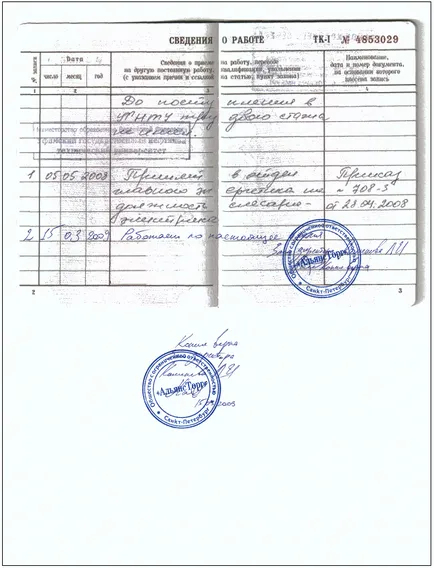 СВЕДЕНИЯ О РАБОТЕ ТК-I № 4853029
№ записи
Дата
число месяц год
Сведения о приеме на работу, переводе
на другую постоянную работу, квалификации, увольнении
(с указанием причин и ссылкой на статью, пункт закона)
Наименование,
дата и номер документа,
на основании которого
внесена запись
1 2 3 4
До поступления в
УГНТУ трудового стажа
не имеет.
Министерство образования
Уфимский государственный нефтяной
технический университет
1 05 05 2008 Принят в отдел Приказ
главного энергетика на № 708-з
должность слесарь- от 28.04.2008
электрика
2 15 03 2009 Работает по настоящее
Общество с ограниченной ответственностью
«АльянсТорг»
Санкт-Петербург
2 3
Копия верна
Общество с ограниченной ответственностью
«АльянсТорг»
Санкт-Петербург